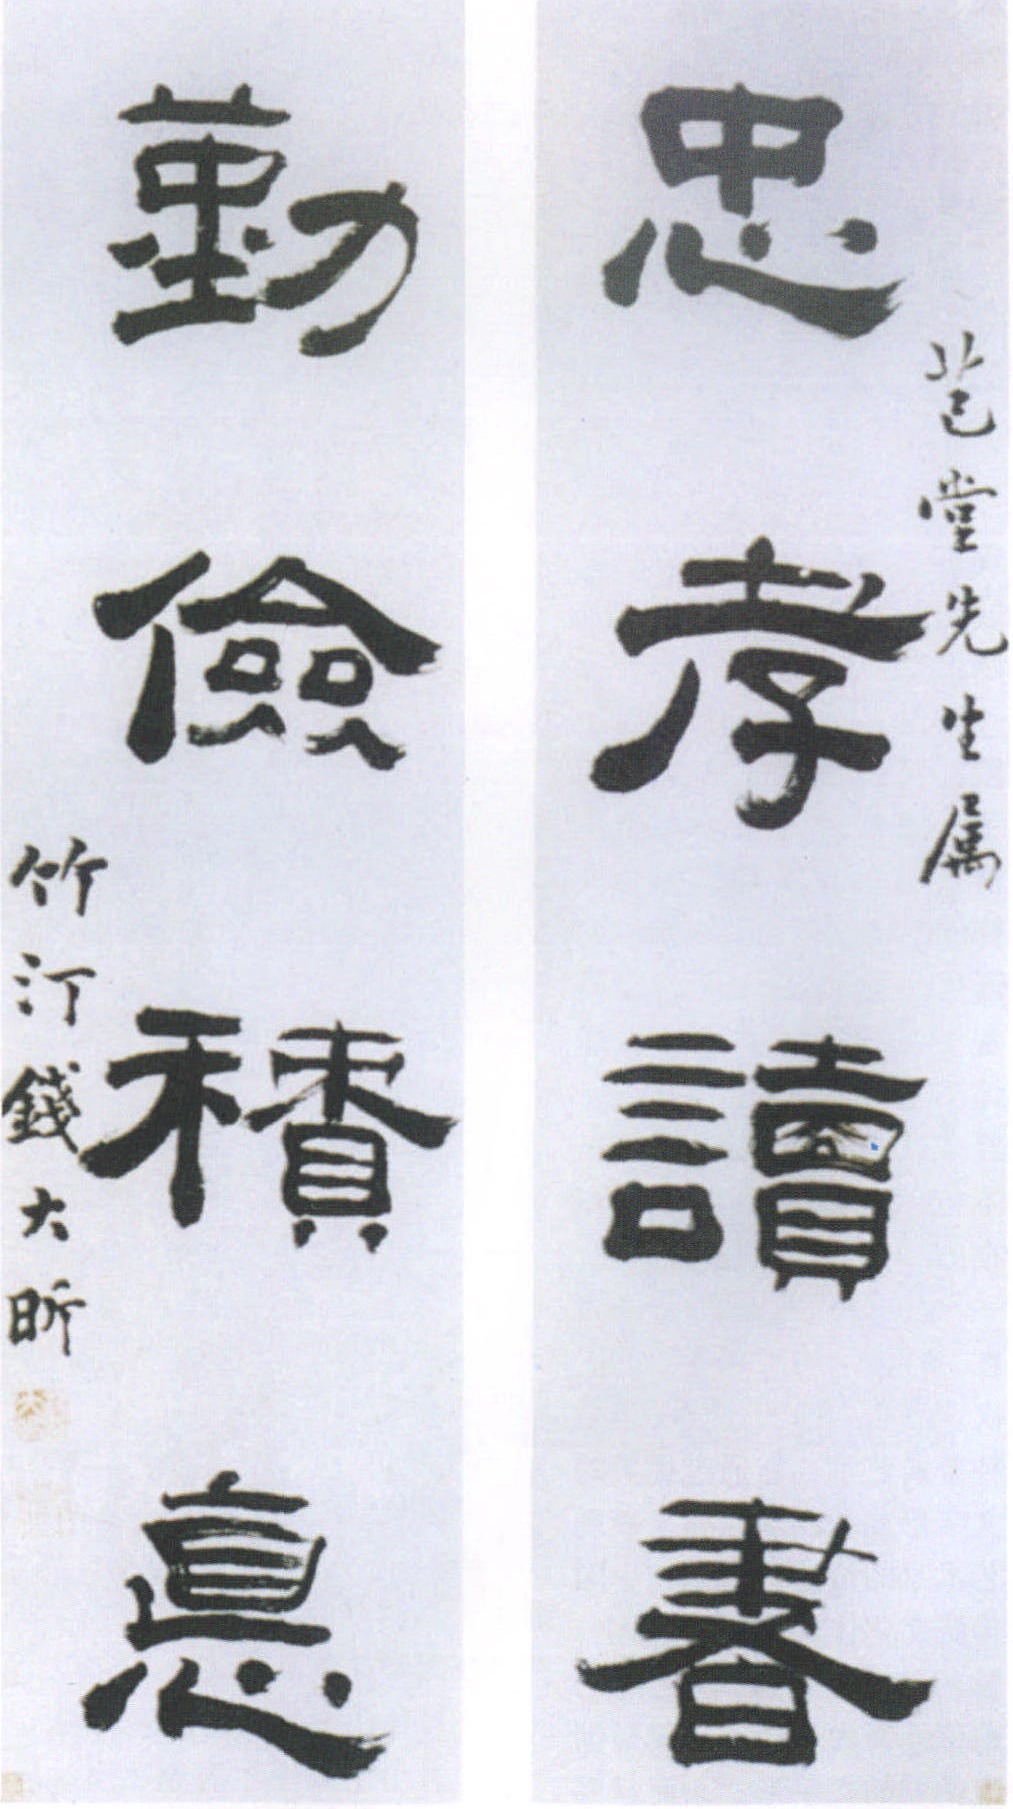 忠孝讀書
芑堂先生属
勤儉積悳
竹汀錢大昕